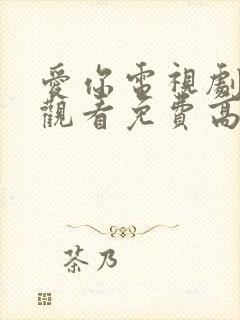 愛你電視劇
觀看免費高
茶乃